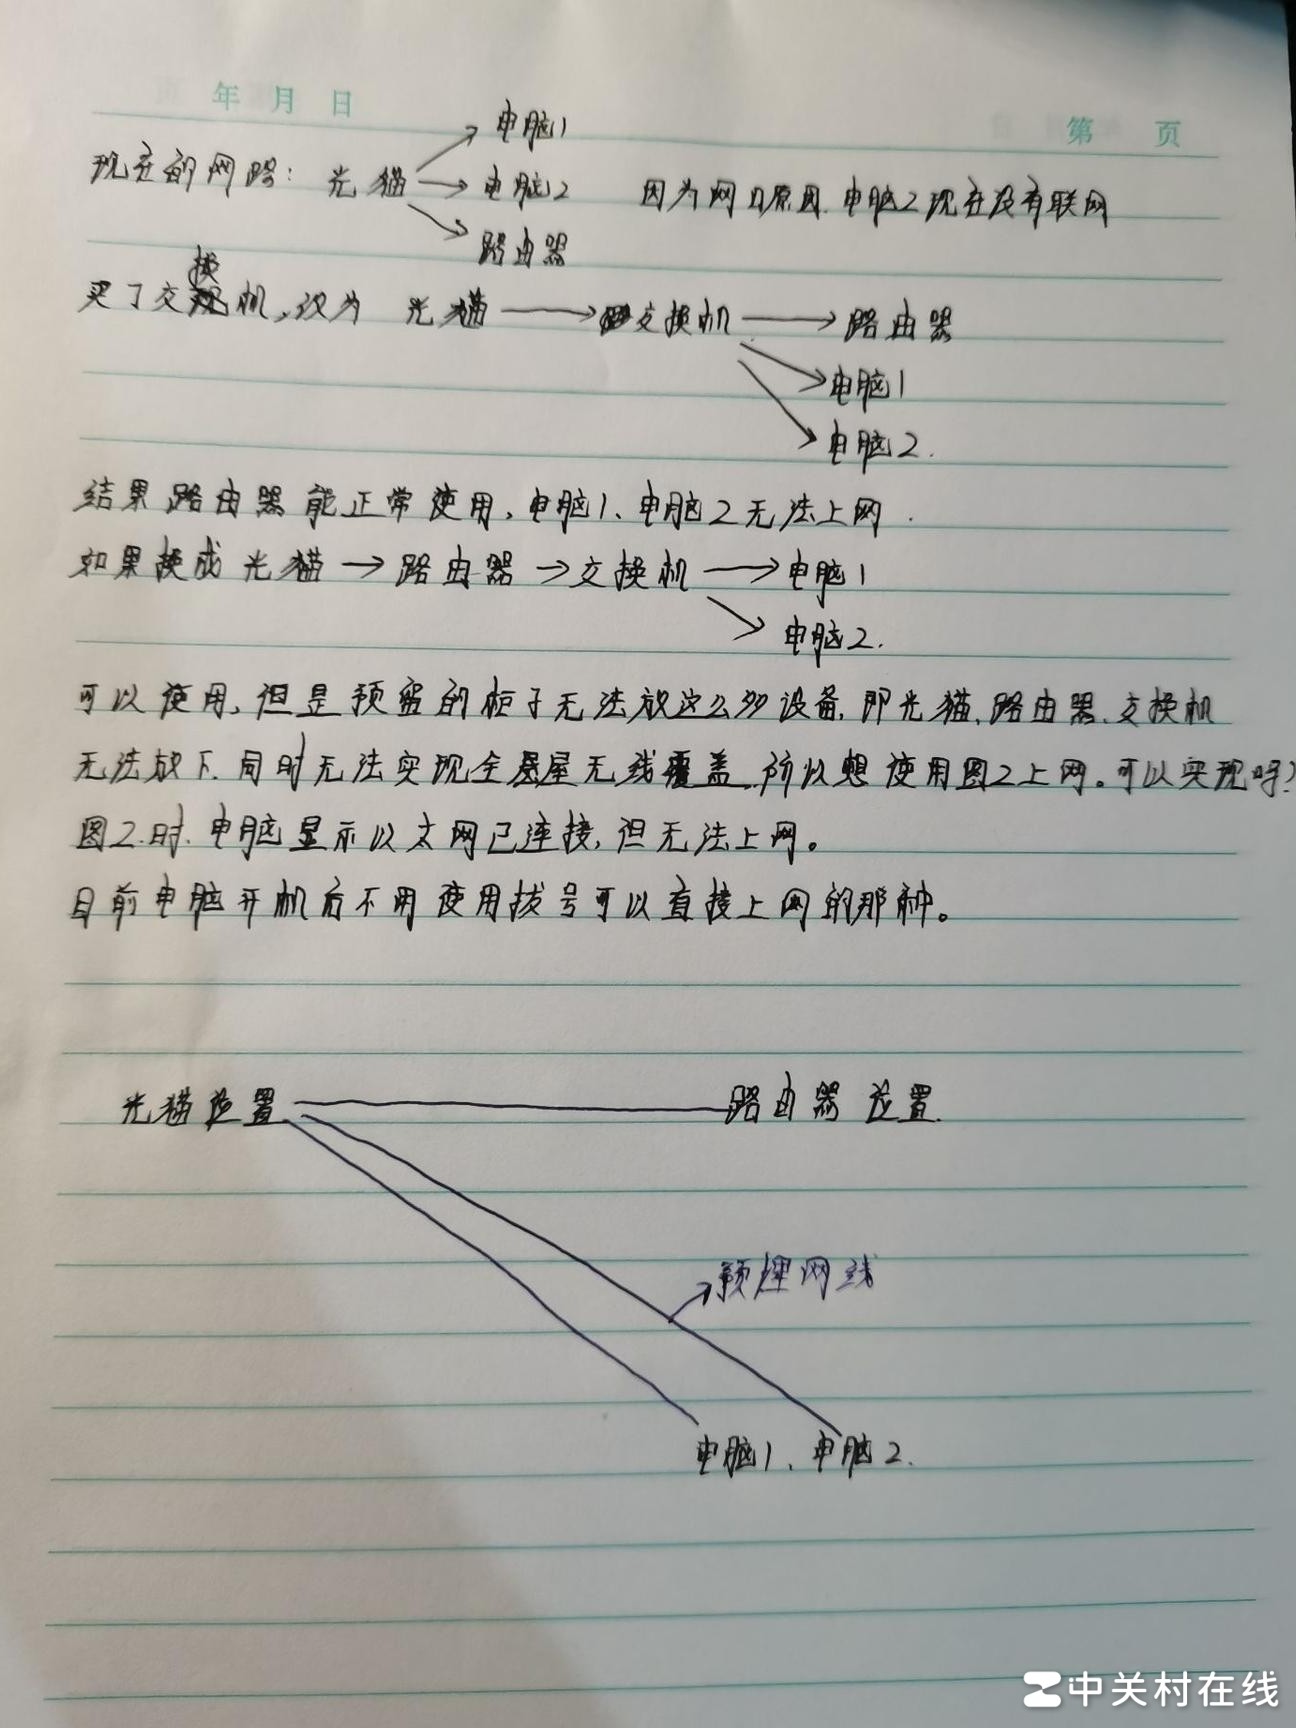 年 月 日
第 页
电脑1
现在的网路: 光猫 电脑2 因为网口原因.电脑2现在没有联网
路由器
买了交换机,设为 光猫 交换机 路由器
电脑1
电脑2.
结果路由器能正常使用,电脑1、电脑2无法上网.
如果换成光猫→路由器→交换机→电脑1
电脑2.
可以使用,但是预留的柜子无法放这么多设备,即光猫、路由器、交换机
无法放下.同时无法实现全屋无线覆盖,所以想使用图2上网。可以实现吗?
图2.时.电脑显示以太网已连接,但无法上网。
目前电脑开机后不用使用拔号可以直接上网的那种。
光猫位置 路由器位置.
预埋网线
电脑1、电脑2.
中关村在线